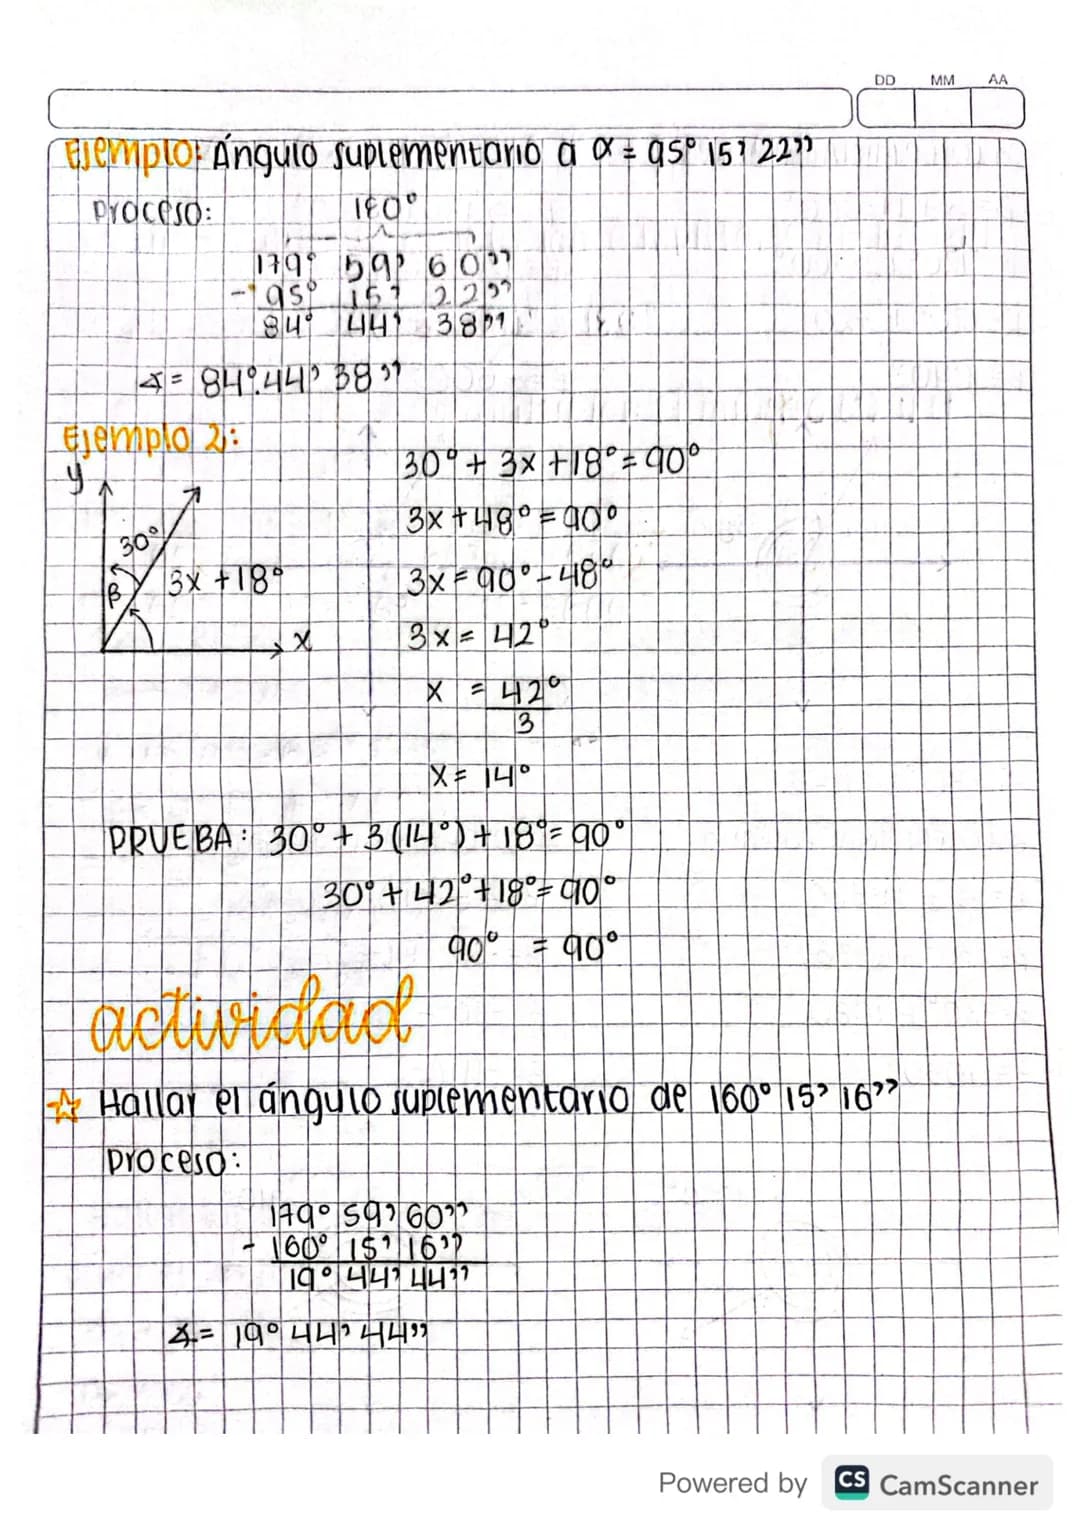 DD MM AA
Ejemplo: Ángulo suplementario a α = 95° 15' 22''
Proceso:
180°
179° 59' 60''
- 95° 15' 22''
84° 44' 38''
∡ = 84° 44' 38''
Ejemplo 2:
y
30°
β
3x + 18°
x
30° + 3x + 18° = 90°
3x + 48° = 90°
3x = 90° - 48°
3x = 42°
x = 42°
3
x = 14°
PRUEBA: 30° + 3(14°) + 18° = 90°
30° + 42° + 18° = 90°
90° = 90°
actividad
☆ Hallar el ángulo suplementario de 160° 15' 16''
proceso:
179° 59' 60''
- 160° 15' 16''
19° 44' 44''
∡ = 19° 44' 44''
Powered by CS CamScanner